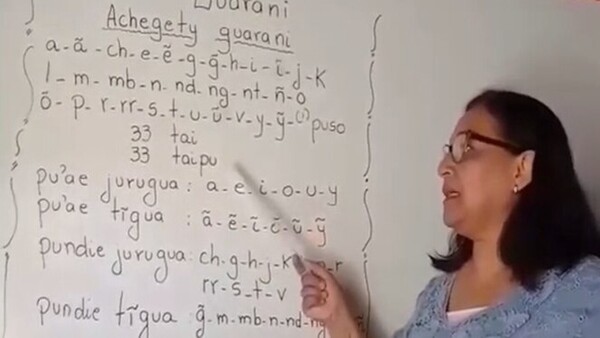 Guarani
Achegety guarani
a-ã-ch-e-ẽ-g-g̃-h-i-ĩ-j-K
l-m-mb-n-nd-ng-nt-ñ-o
õ-p-r-rr-s-t-u-ũ-v-y-ỹ-(') puso
33 tai
33 taipu
pu'ae jurugua: a-e-i-o-u-y
pu'ae tĩgua : ã-ẽ-ĩ-ũ-ỹ
pundie jurugua: ch-g-h-j-K r
rr-s-t-v
pundie tĩgua : g̃-m-mb-n-nd-ng